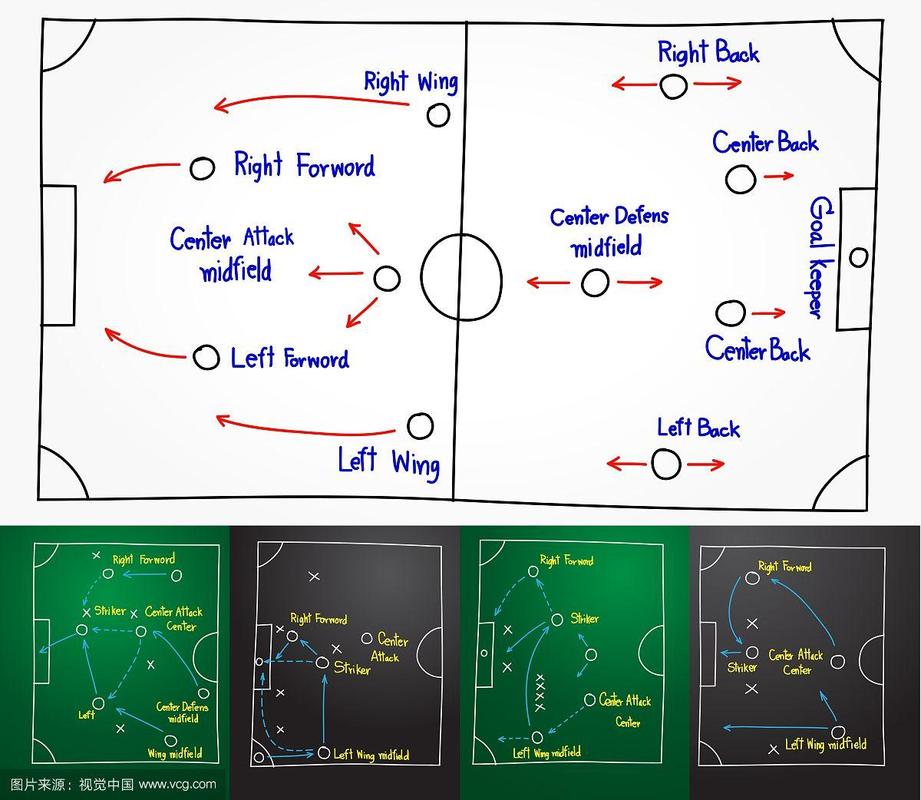 Right Back
Right Wing
Center Back
Right Forword
Goal Keeper
Center Defens
midfield
Center Attack
midfield
Left Forword
Center Back
Left Back
Left Wing
Right Forword
Striker
Center Attack
Center
Left
Center Defens
midfield
Wing midfield
Right Forword
Center
Attack
Striker
Left Wing midfield
Right Forword
Striker
Center Attack
Center
Left Wing midfield
Right Forword
Striker
Center Attack
Center
Left Wing midfield
图片来源：视觉中国 www.vcg.com